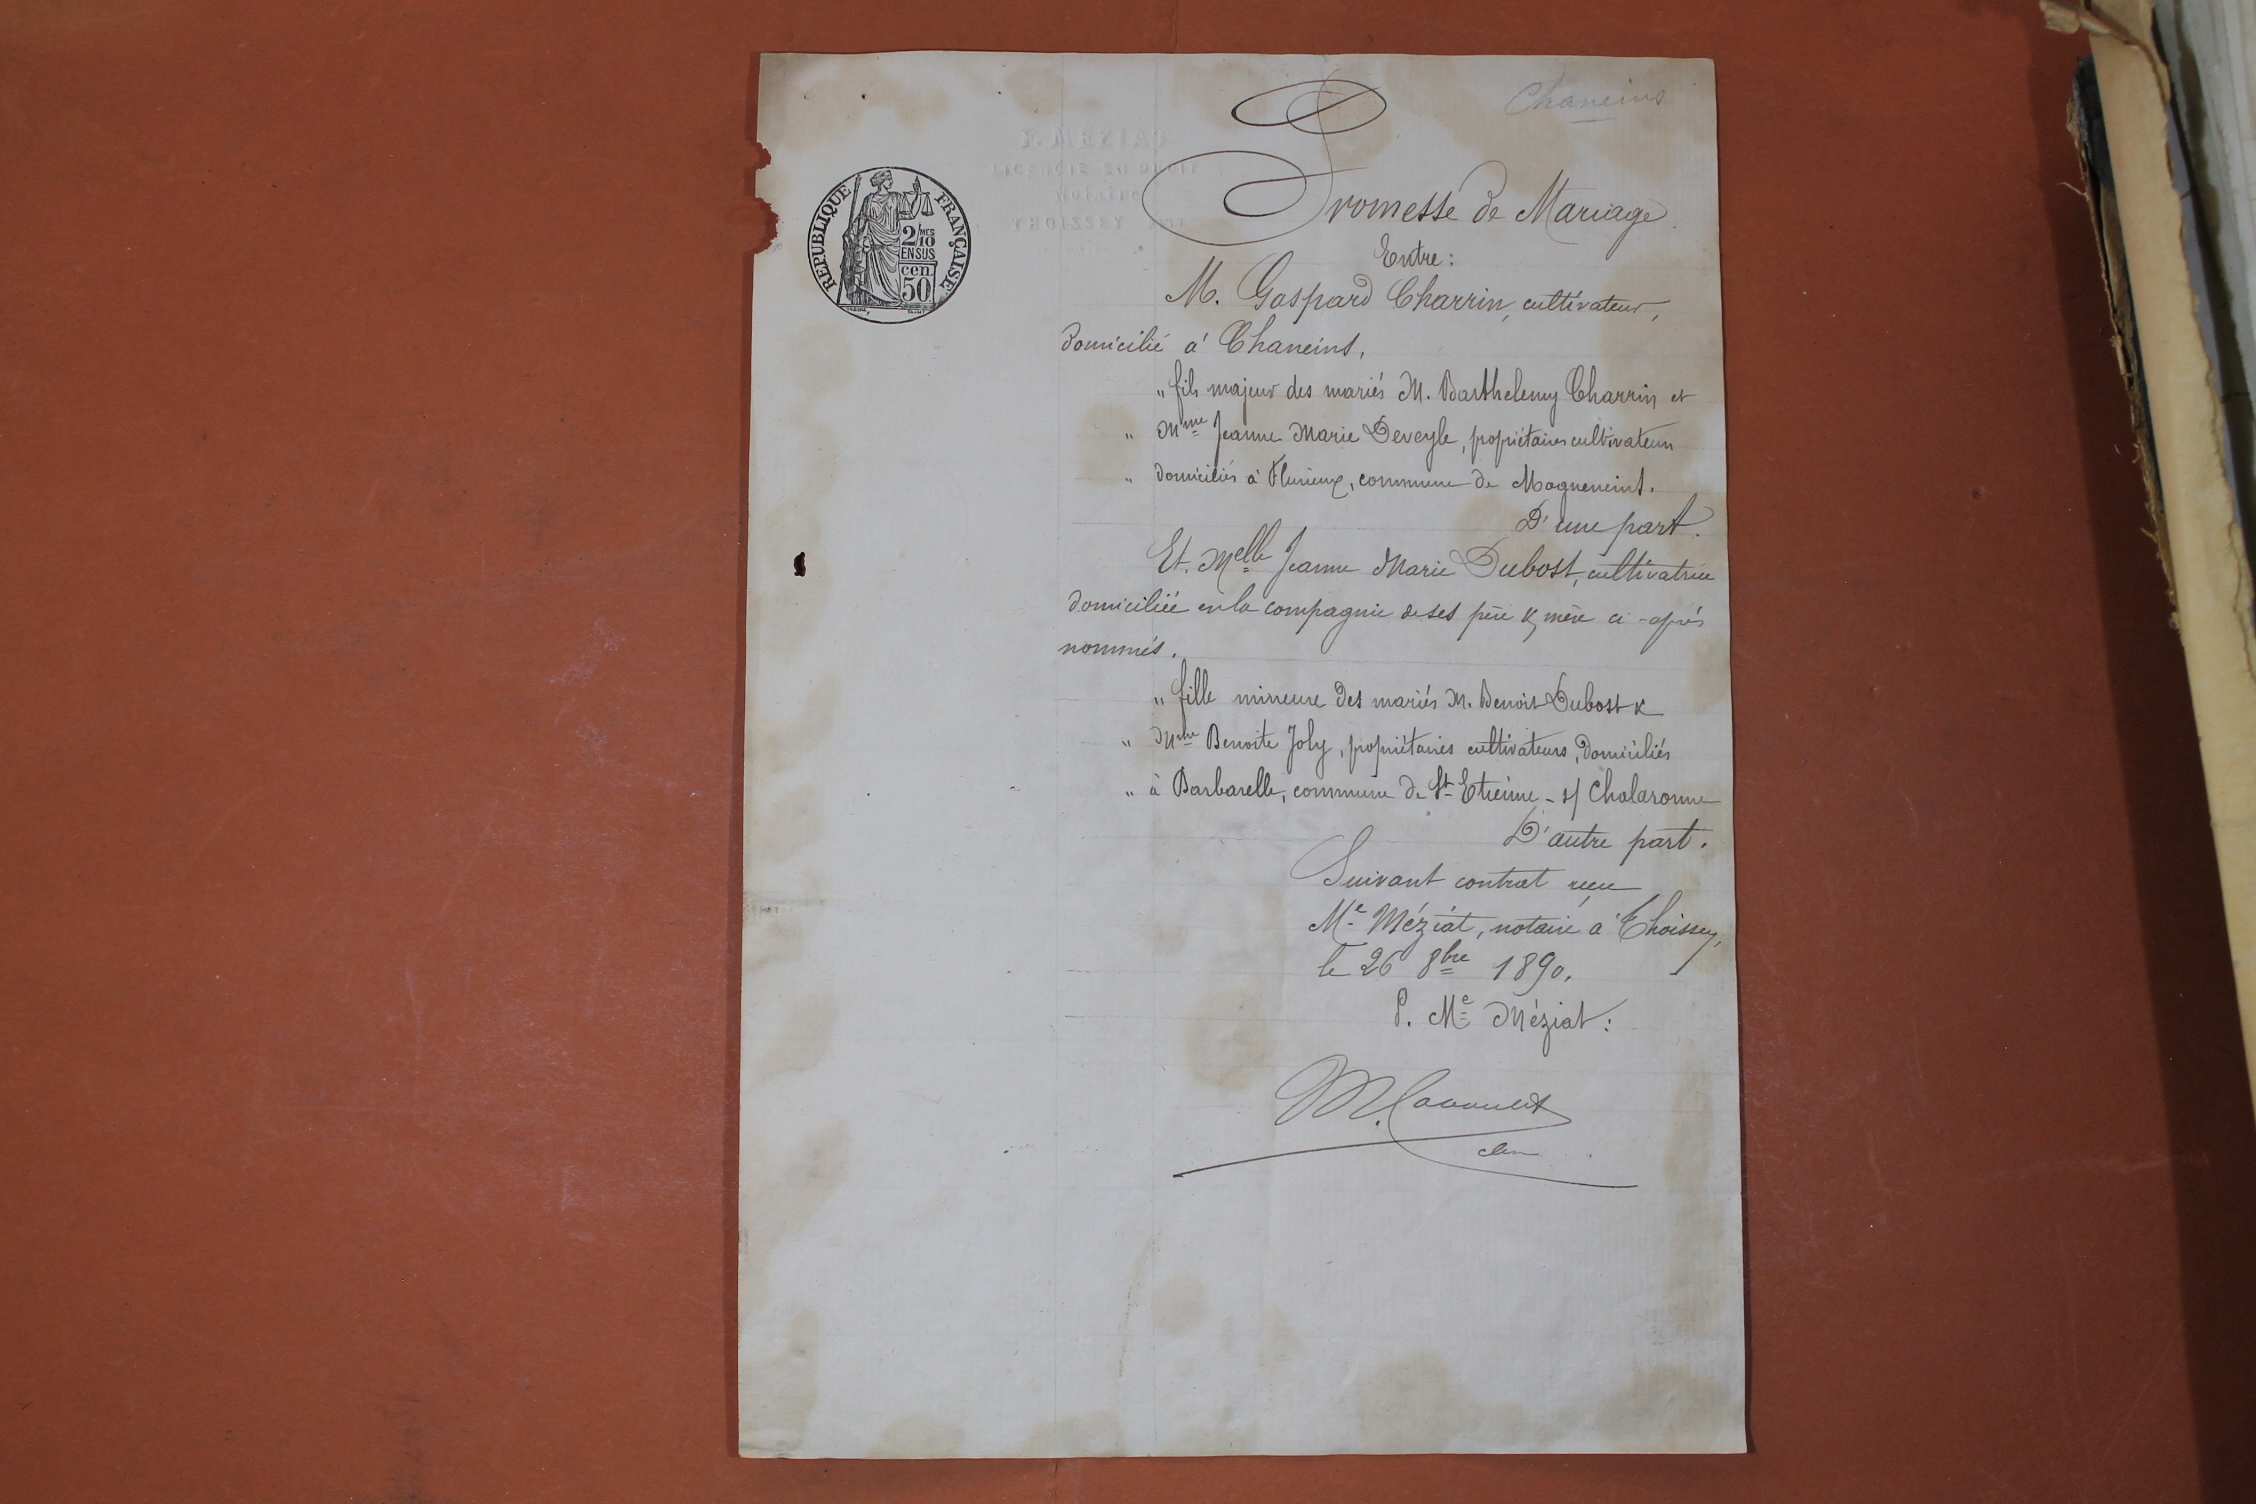 Chaneins
Promesse de Mariage
Entre :
M. Gaspard Charrin, cultivateur,
domicilié à Chaneins,
„ fils majeur des mariés M. Barthelemy Charrin et
„ Mme Jeanne Marie Deveyle, propriétaires cultivateurs
„ domiciliés à Flurieux, commune de Magneneins.
D'une part.
Et. Melle Jeanne Marie Dubost, cultivatrice
domiciliée en la compagnie de ses père & mère ci-après
nommés.
„ fille mineure des mariés M. Benoit Dubost &
„ Mme Benoite Joly, propriétaires cultivateurs, domiciliés
„ à Barbarelle, commune de St Etienne - s/ Chalaronne
D'autre part.
Suivant contrat reçu
Me Méziat, notaire à Thoissey,
le 26 8bre 1890.
P. Me Méziat :
REPUBLIQUE FRANÇAISE
2/10MES
EN SUS
cen.
50